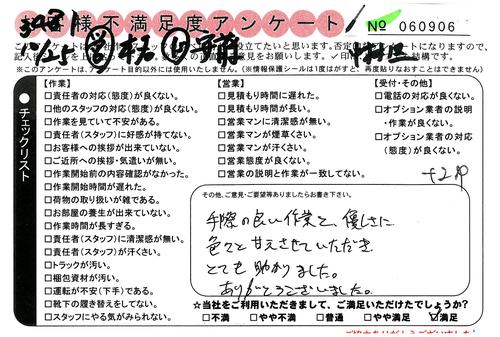 お客様不満足度アンケート
№ 060906
12/25
※このアンケートは、アンケート目的以外には使用いたしません。(※情報保護シールは1度はがすと、再度貼りなおすことはできません
チェックリスト
【作業】
□責任者の対応(態度)が良くない。
□他のスタッフの対応(態度)が良くない。
□作業を見ていて不安がある。
□責任者(スタッフ)に好感が持てない。
□お客様への挨拶が出来ていない。
□ご近所への挨拶・気遣いが無い。
□作業開始前の内容確認がなかった。
□作業開始時間が遅れた。
□荷物の取り扱いが雑である。
□お部屋の養生が出来ていない。
□作業時間が長すぎる。
□責任者(スタッフ)に清潔感が無い。
□責任者(スタッフ)が汗くさい。
□トラックが汚い。
□梱包資材が汚い。
□運転が不安(下手)である。
□靴下の履き替えをしてない。
□スタッフにやる気がみられない。
【営業】
□見積もり時間に遅れた。
□見積もり時間が長い。
□営業マンに清潔感が無い。
□営業マンが煙草くさい。
□営業マンが汗くさい。
□営業態度が良くない。
□営業の説明と作業が一致してない。
【受付・その他】
□電話の対応が良くない。
□オプション業者の説明
・作業が良くない。
□オプション業者の対応
(態度)が良くない。
その他、ご意見・ご要望等ありましたらお書き下さい。
手際の良い作業と、優しさに
色々と甘えさせていただき
とても助かりました。
ありがとうございました。
☆当社をご利用いただきまして、ご満足いただけたでしょうか?
□不満 □やや不満 □普通 □やや満足 ☑満足